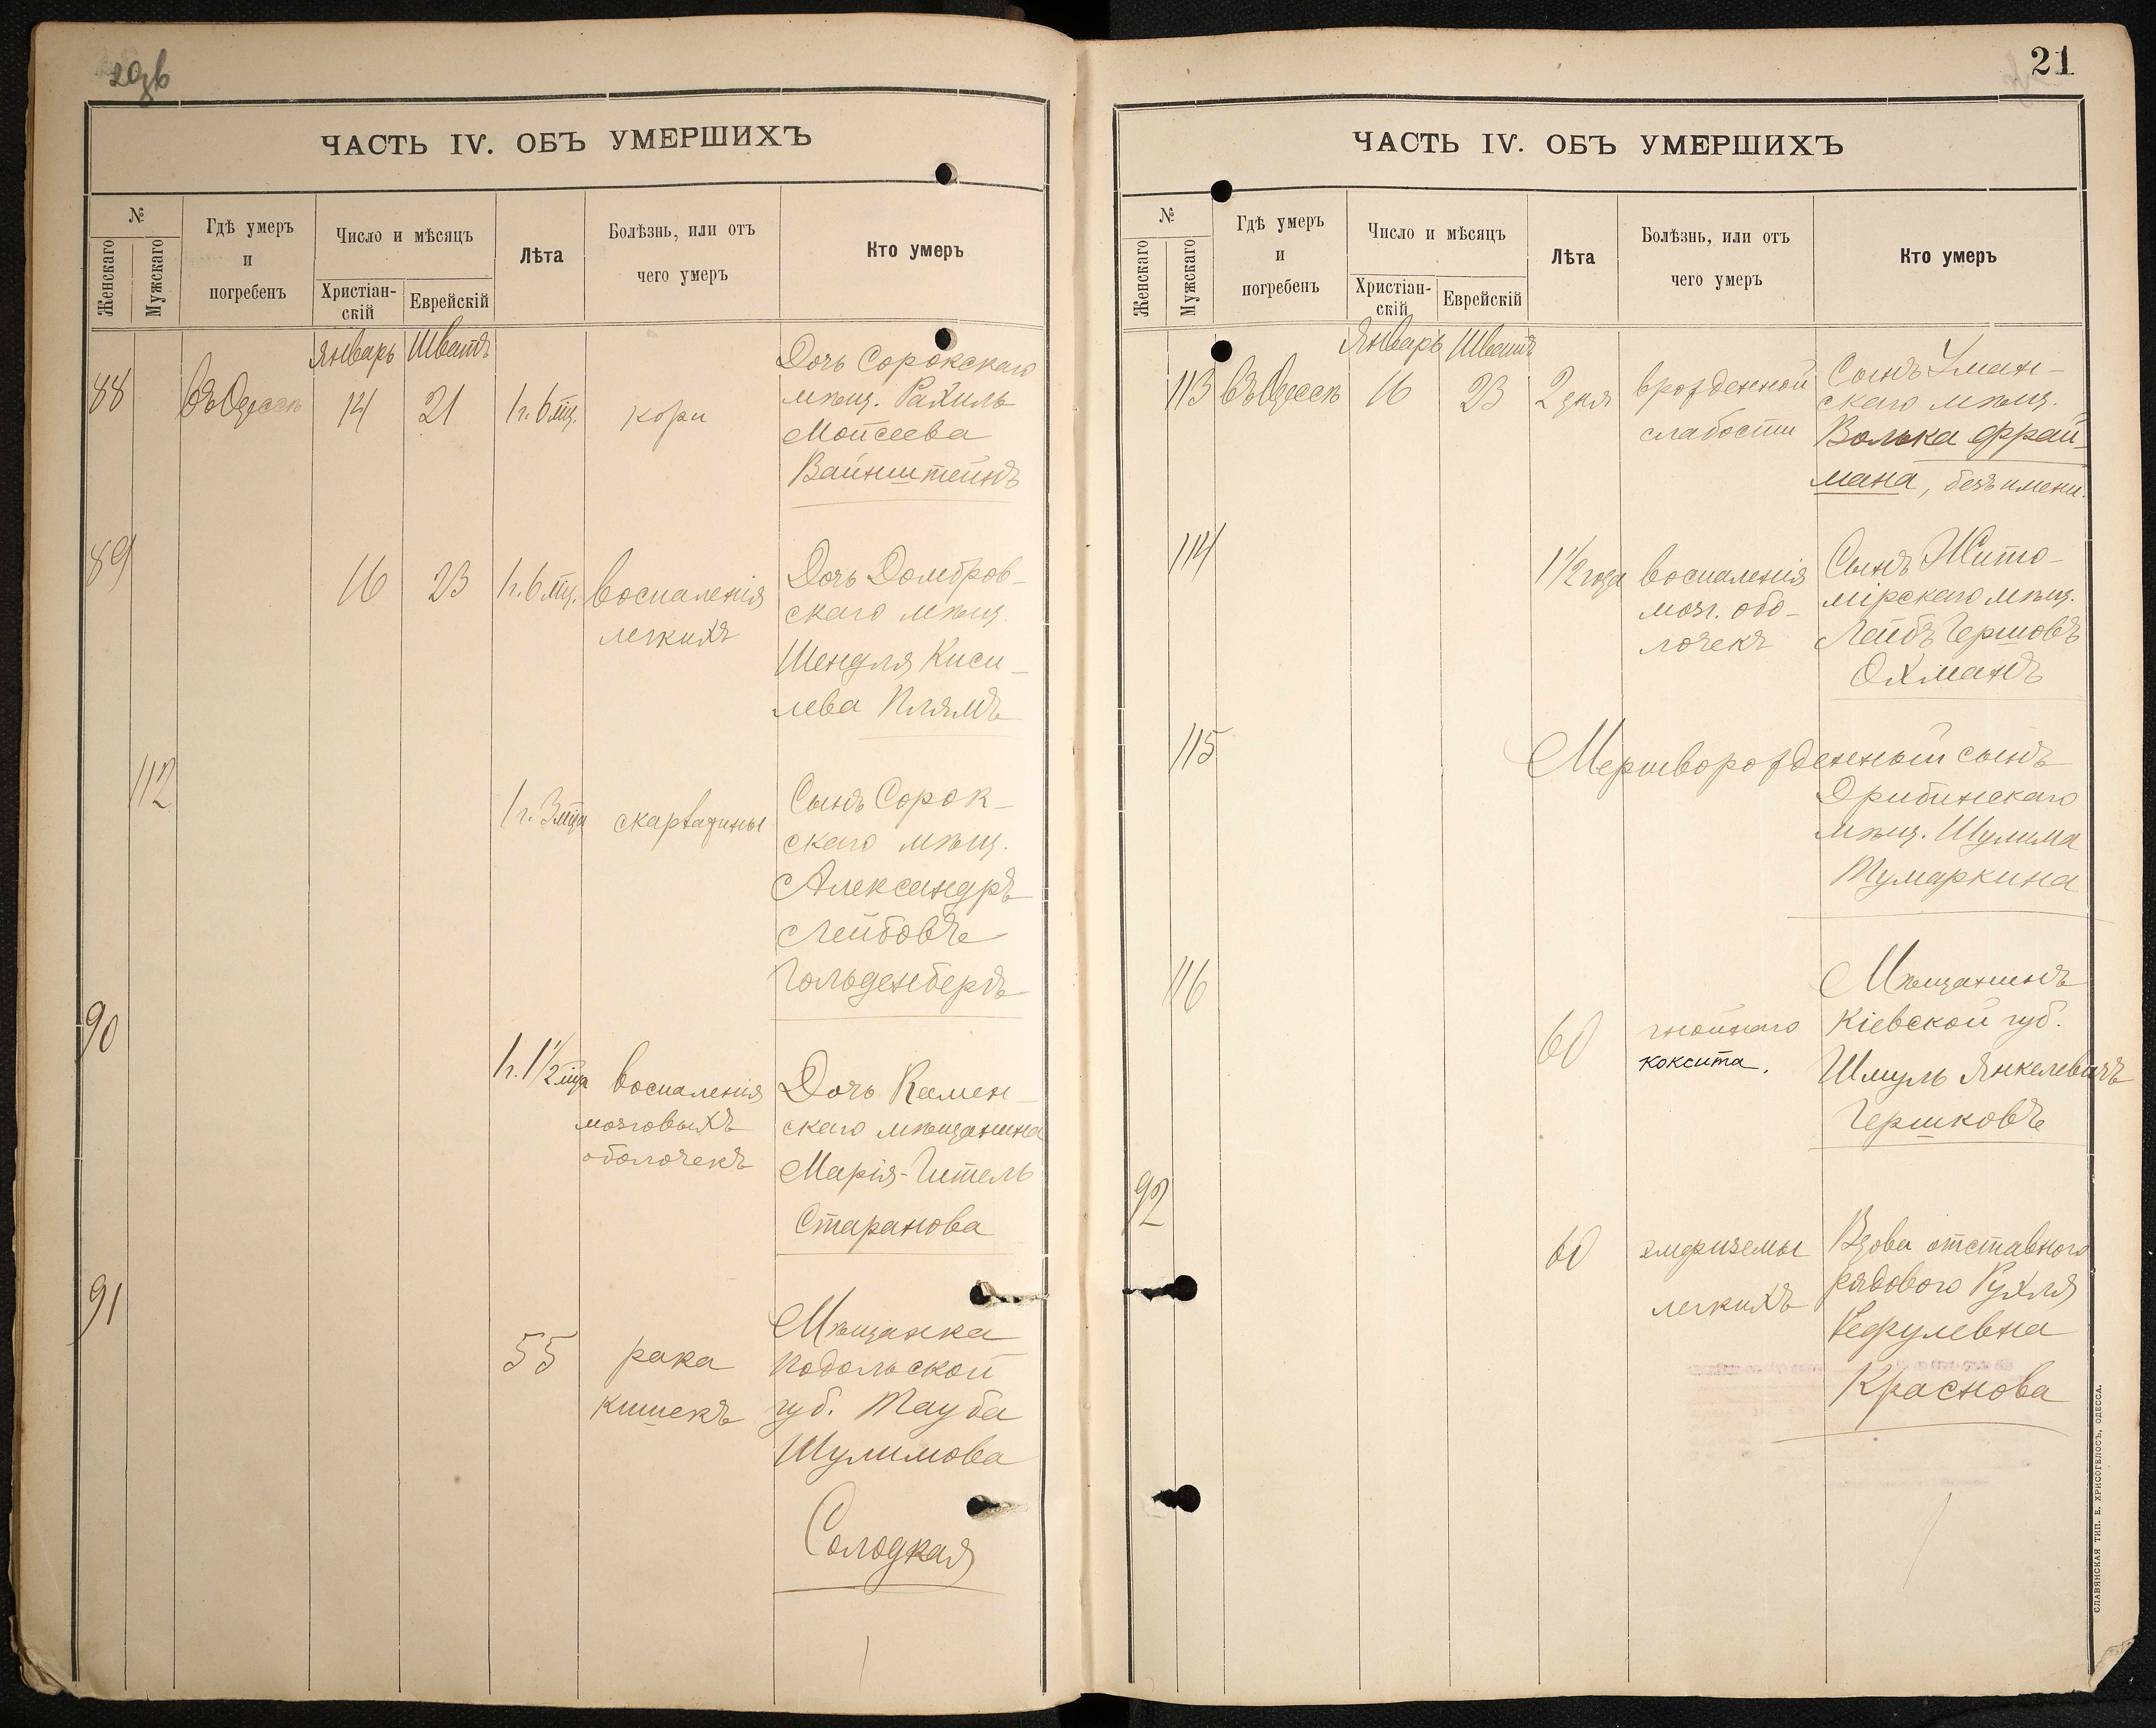 20об
ЧАСТЬ IV. ОБЪ УМЕРШИХЪ
№
Женскаго
Мужскаго
Гдѣ умеръ
и
погребенъ
Число и мѣсяцъ
Христіан-
скій
Еврейскій
Лѣта
Болѣзнь, или отъ
чего умеръ
Кто умеръ
Январь Шватъ
88 въ Одессѣ 14 21 1 г. 6 мц. кори
Дочь Сорокскаго
мѣщ. Рахиль
Мойсеева
Вайнштейнъ
89 16 23 1 г. 6 мц. воспаленія
легкихъ
Дочь Домбров-
скаго мѣщ.
Шендля Киси-
лева Плямъ
112 1 г. 3 мца скарлатины
Сынъ Сорок-
скаго мѣщ.
Александръ
Лейбовъ
Гольденбергъ
90 1 г. 1 1/2 мца воспаленія
мозговыхъ
оболочекъ
Дочь Камен-
скаго мѣщанина
Марія-Гитель
Старанова
91 55 рака
кишекъ
Мѣщанка
Подольской
губ. Тауба
Шулимова
Солодкая
21
ЧАСТЬ IV. ОБЪ УМЕРШИХЪ
№
Женскаго
Мужскаго
Гдѣ умеръ
и
погребенъ
Число и мѣсяцъ
Христіан-
скій
Еврейскій
Лѣта
Болѣзнь, или отъ
чего умеръ
Кто умеръ
Январь Шватъ
113 въ Одессѣ 16 23 2 дня врожденной
слабости
Сынъ Уман-
скаго мѣщ.
Волька Фрай-
мана, безъ имени.
114 1 1/2 года воспаленія
мозг. обо-
лочекъ
Сынъ Жито-
мірскаго мѣщ.
Лейбъ Гершовъ
Охманъ
115 Мертворожденный сынъ
Дрибинскаго
мѣщ. Шулима
Тумаркина
116 60 гнойнаго
коксита.
Мѣщанинъ
Кіевской губ.
Шмуль Янкелевичъ
Гершковъ
92 60 эмфиземы
легкихъ
Вдова отставного
рядового Рухля
Краснова
СЛАВЯНСКАЯ ТИП. Е. ХРИСОГЕЛОСЪ, ОДЕССА.